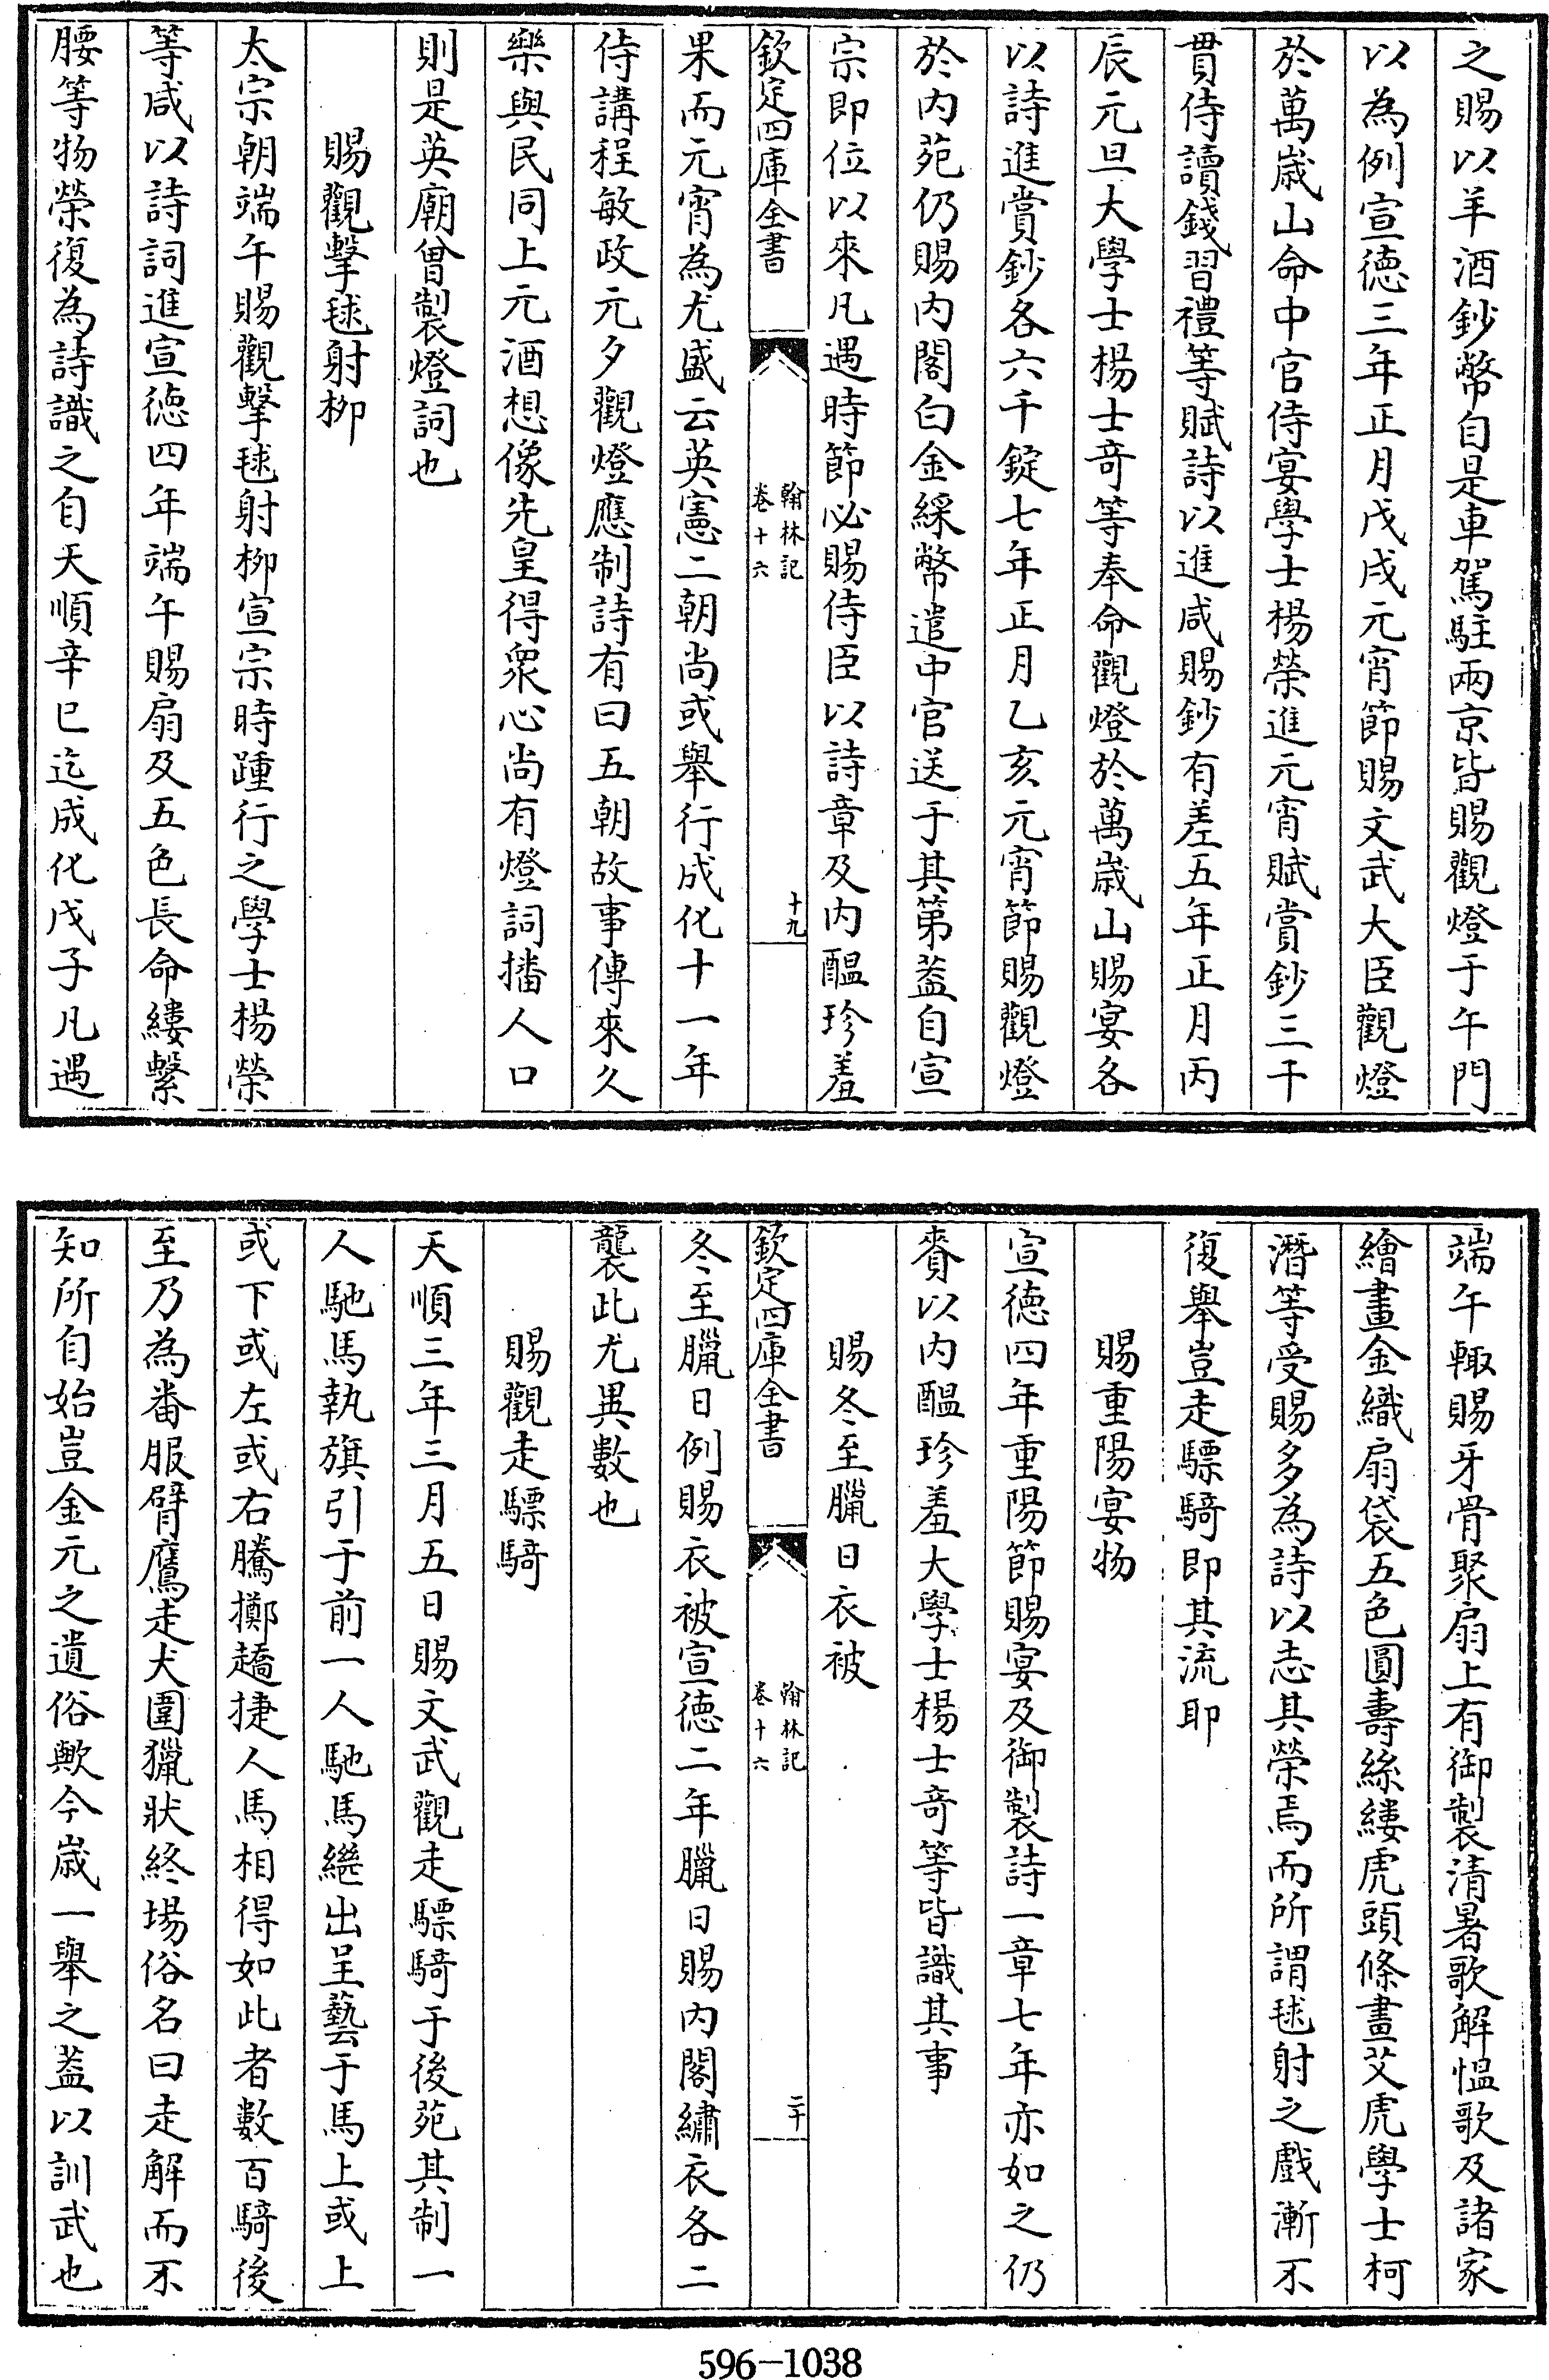 之賜以羊酒鈔幣自是車駕駐兩京皆賜觀燈于午門
以為例宣徳三年正月戊戌元宵節賜文武大臣觀燈
於萬歲山命中官侍宴學士楊榮進元宵賦賞鈔三千
貫侍讀錢習禮等賦詩以進咸賜鈔有差五年正月丙
辰元旦大學士楊士竒等奉命觀燈於萬歲山賜宴各
以詩進賞鈔各六千錠七年正月乙亥元宵節賜觀燈
於内苑仍賜内閣白金綵幣遣中官送于其第葢自宣
宗即位以來凡遇時節必賜侍臣以詩章及内醖珍羞
欽定四庫全書
翰林記
卷十六
十九
果而元宵為尤盛云英憲二朝尚或舉行成化十一年
侍講程敏政元夕觀燈應制詩有曰五朝故事傳來久
樂與民同上元酒想像先皇得衆心尚有燈詞播人口
則是英廟曾製燈詞也
賜觀擊毬射栁
太宗朝端午賜觀擊毬射栁宣宗時踵行之學士楊榮
等咸以詩詞進宣徳四年端午賜扇及五色長命縷繫
腰等物榮復為詩識之自天順辛巳迄成化戊子凡遇
端午輙賜牙骨聚扇上有御製清暑歌解愠歌及諸家
繪畫金織扇袋五色圓壽絲縷虎頭絛畫艾虎學士柯
潛等受賜多為詩以志其榮焉而所謂毬射之戲漸不
復舉豈走驃騎即其流耶
賜重陽宴物
宣徳四年重陽節賜宴及御製詩一章七年亦如之仍
賚以内醖珍羞大學士楊士竒等皆識其事
賜冬至臘日衣被
欽定四庫全書
翰林記
卷十六
二十
冬至臘日例賜衣被宣徳二年臘日賜内閣繡衣各二
襲此尤異數也
賜觀走驃騎
天順三年三月五日賜文武觀走驃騎于後苑其制一
人馳馬執旗引于前一人馳馬繼出呈藝于馬上或上
或下或左或右騰擲趫捷人馬相得如此者數百騎後
至乃為番服臂鷹走犬圍獵狀終場俗名曰走解而不
知所自始豈金元之遺俗歟今歲一舉之葢以訓武也
596-1038